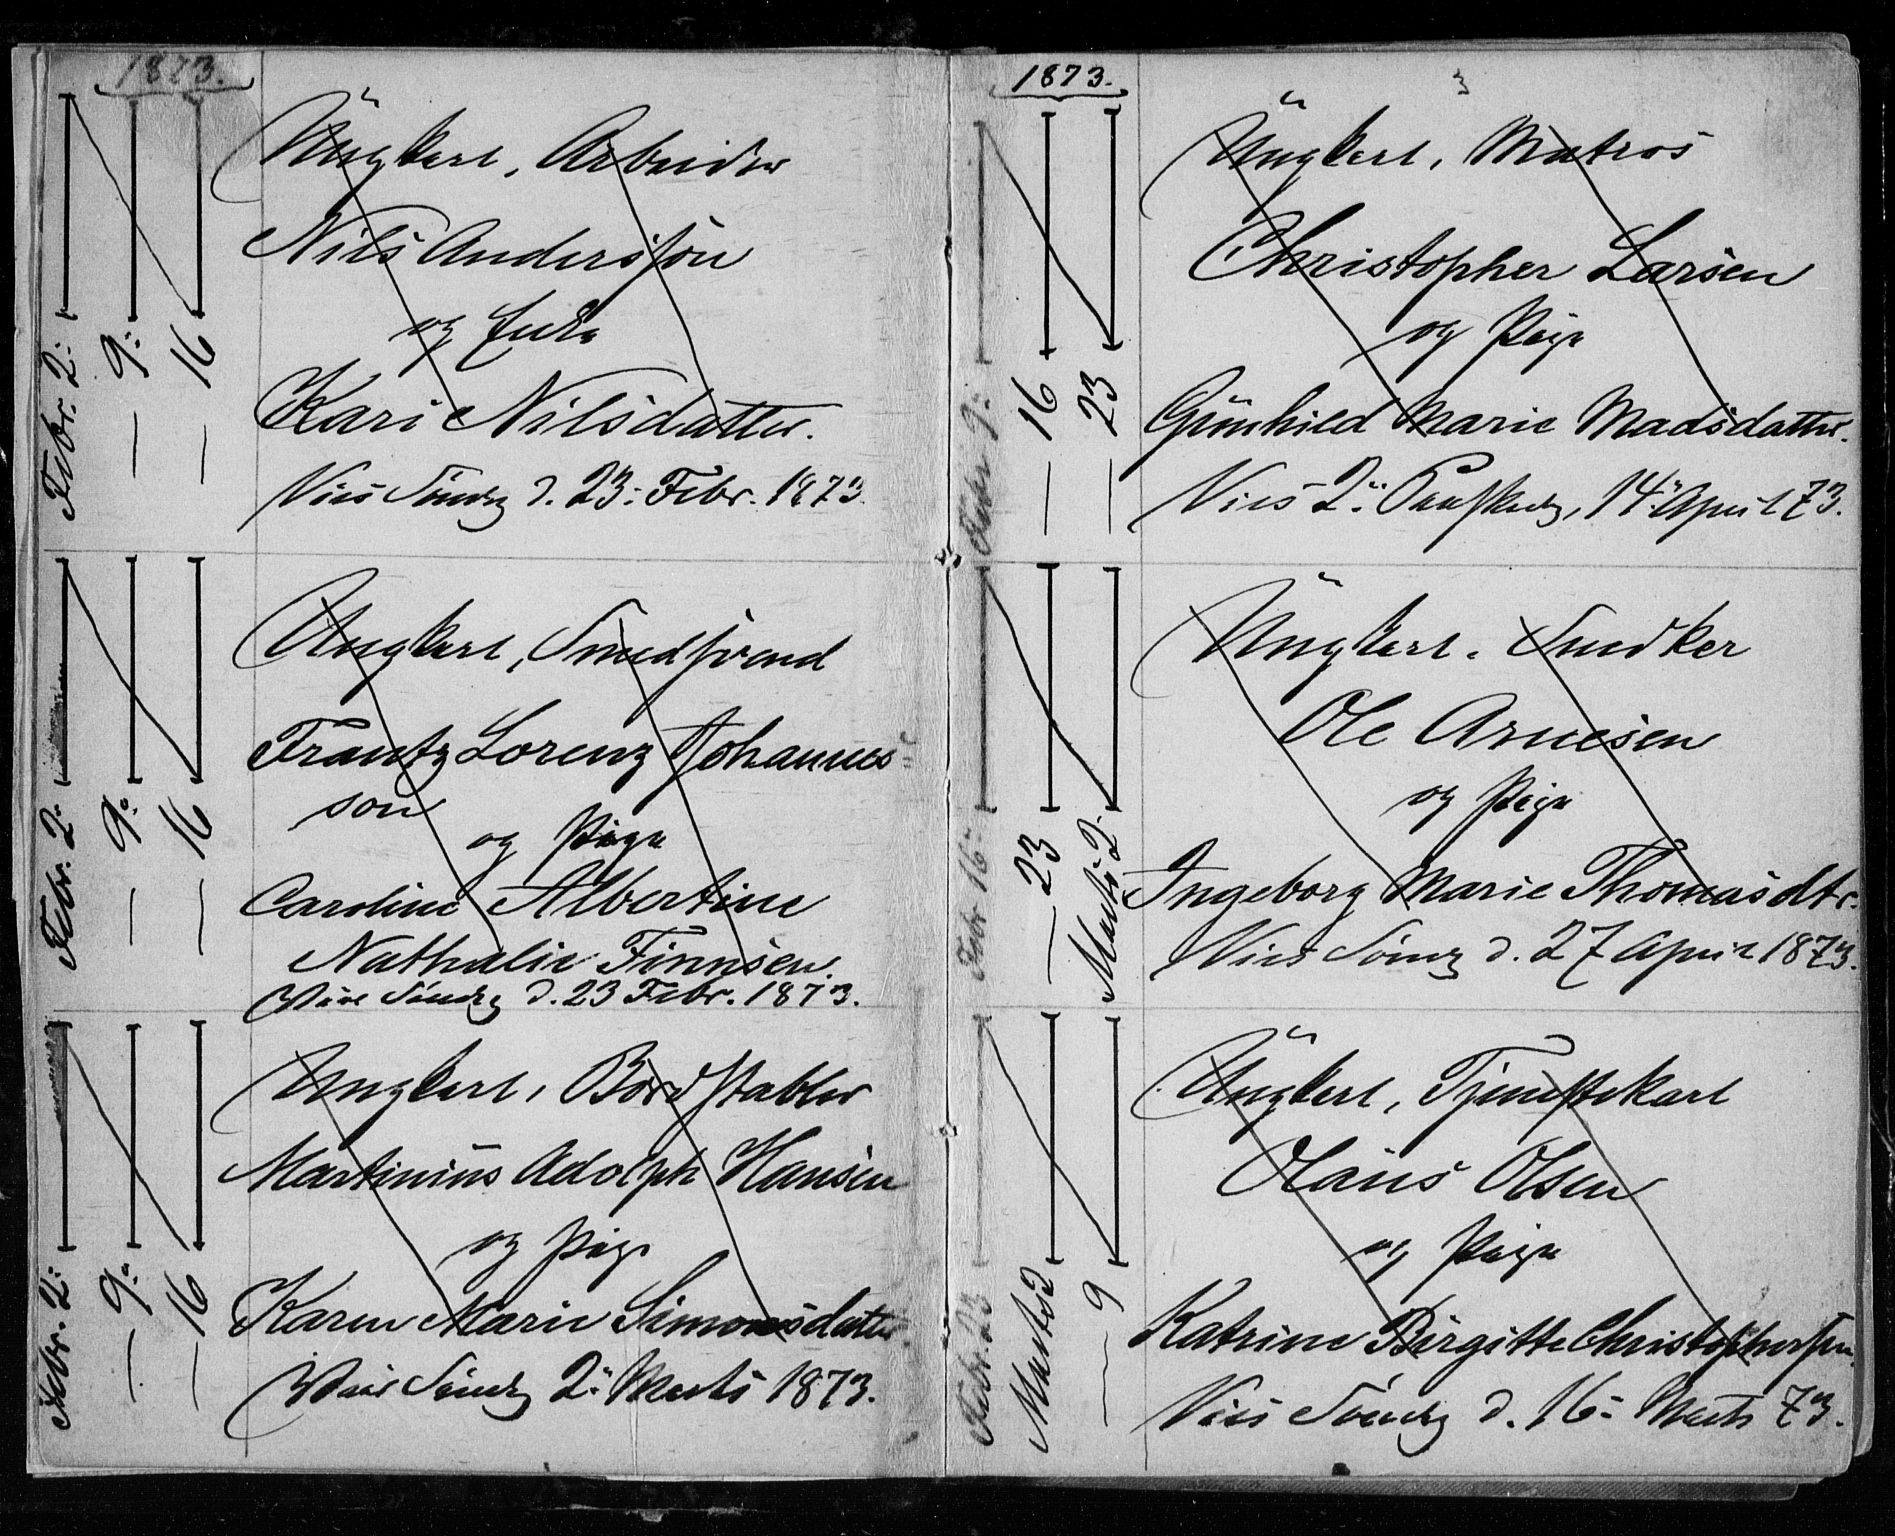 1873.
Febr. 2:
— 9:
— 16
Üngkarl, Arbeider
Nils Andersson
og Enke
Kari Nilsdatter.
Vies Søndg d. 23: Febr. 1873.
Febr. 2:
— 9:
— 16
Ungkarl, Smedsvend
Frantz Lorenz Johannes=
son
og Pige
Caroline Albertine
Nathalie Finnsen.
Viet Søndg d. 23 Febr. 1873.
Febr. 2:
— 9:
— 16
Ungkarl, Bordstabler
Martinius Adolph Hansen
og Pige
Karen Marie Simonsdatter
Viet Søndg 2: Marts 1873.
1873.
3
Febr 9:
— 16
— 23
Üngkarl, Matros
Christopher Larsen
og Pige
Günhild Marie Madsdatter.
Vies 2: Paaskedg, 14: April 73.
Febr 16:
— 23
Marts 2:
Üngkarl. Snedker
Ole Arnesen
og Pige
Ingeborg Marie Thomasdtr.
Vies Søndg d. 27 April 1873.
Febr. 23
Marts 2
— 9
Üngkarl, Tjenestekarl
Olaus Olsen
og Pige
Katrine Birgitte Christophersen.
Vies Søndg d. 16: Marts 73.